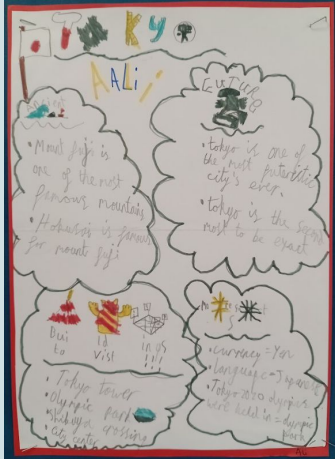 TOKYO
AALii
ANCIENT
• Mount fuji is
one of the most
famous mountains
• Hokusai is famous
for mount fuji
FUTURE
• tokyo is one of
the most futuristic
city's ever
• tokyo is the second
most to be exact
Bui ld in
to visit in as !!!!
• Tokyo tower
• Olympic park
• Shibuya crossing
• City center
S
• currency = Yen
• language = Japanese
• Tokyo 2020 olympics
were held in olympic
park